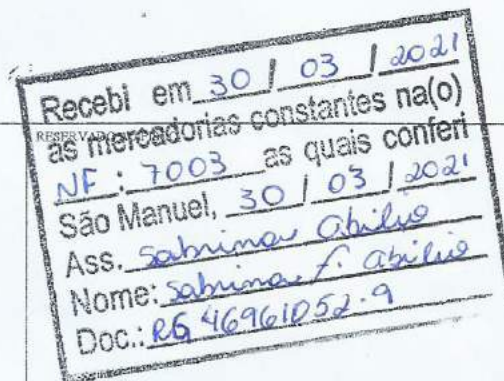 Recebi em 30 / 03 / 2021
RESERVADO
as mercadorias constantes na(o)
NF : 7003 as quais conferi
São Manuel, 30 / 03 / 2021
Ass. Sabrina Abilio
Nome: Sabrina F. Abilio
Doc.: RG 46961052-9